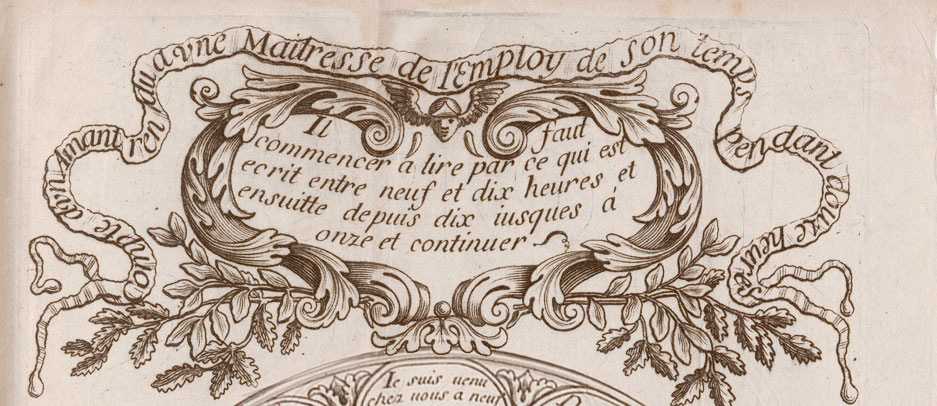 Compte d'vn Amant ren du a vne Maitresse de l'Employ de son temps pendant douze heures
Il faut
commencer à lire par ce qui est
ecrit entre neuf et dix heures et
ensuitte depuis dix iusques á
onze et continuer
Ie suis uenu
chez uous a neuf